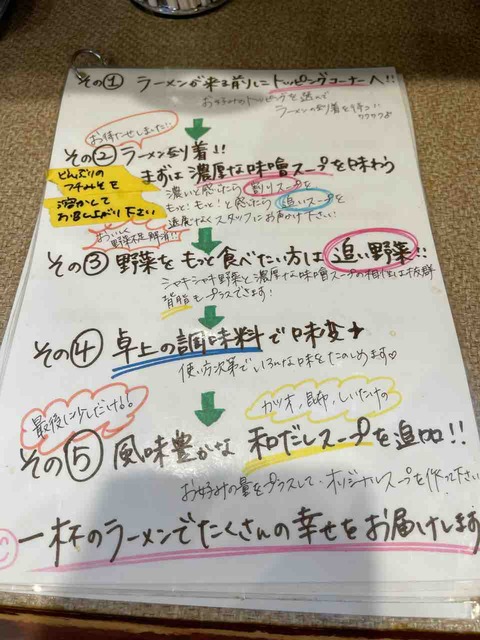 その① ラーメンが来る前にトッピングコーナーへ!!
お好みのトッピングを選んで
ラーメンの到着を待つ!!
ワクワク♪
お待たせしました!!
その② ラーメン到着!!
まずは濃厚な味噌スープを味わう
どんぶりの
フチみそを
溶かして
お召し上がり下さい
濃いと感じたら 割りスープを
もっと!もっと!と感じたら 追いスープを
遠慮なくスタッフにお声かけ下さい!
おいしく
野菜不足解消!!
その③ 野菜をもっと食べたい方は 追い野菜!!
シャキシャキ野菜と濃厚な味噌スープの相性は抜群
背脂もプラスできます!
その④ 卓上の調味料で味変
使い方次第でいろんな味をたのしめます♡
最後に少しだけ!!
カツオ、昆布、しいたけの
その⑤ 風味豊かな 和だしスープを追加!!
お好みの量をプラスして、オリジナルスープを作って下さい
一杯のラーメンでたくさんの幸せをお届けします